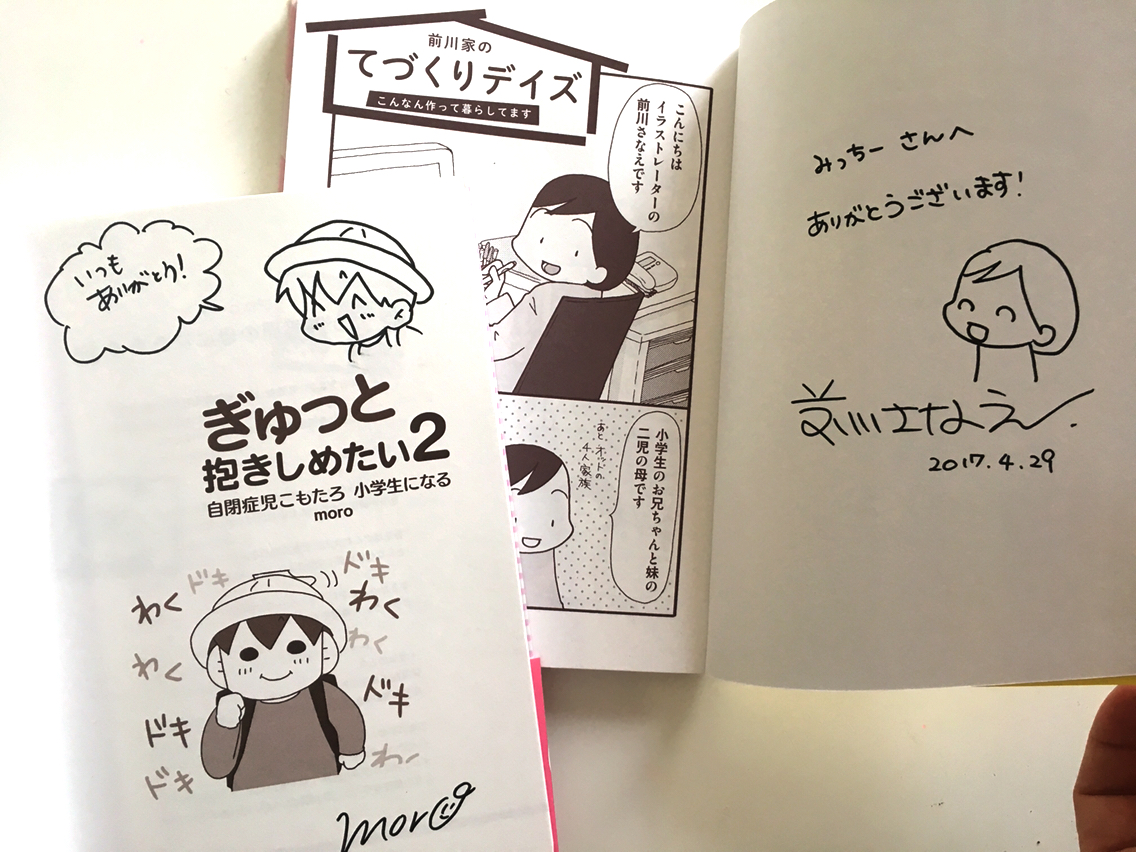 前川家の
てづくりデイズ
こんなん作って暮らしてます
こんにちは
イラストレーターの
前川さなえです
小学生のお兄ちゃんと妹の
二児の母です
あとオットの
4人家族
みっちーさんへ
ありがとうございます!
前川さなえ
2017.4.29
いつも
ありがとう!
ぎゅっと
抱きしめたい2
自閉症児こもたろ 小学生になる
moro
ドキ
ドキ
わく
わく
わく
わく
ドキ
ドキ
ドキ
わく
moro